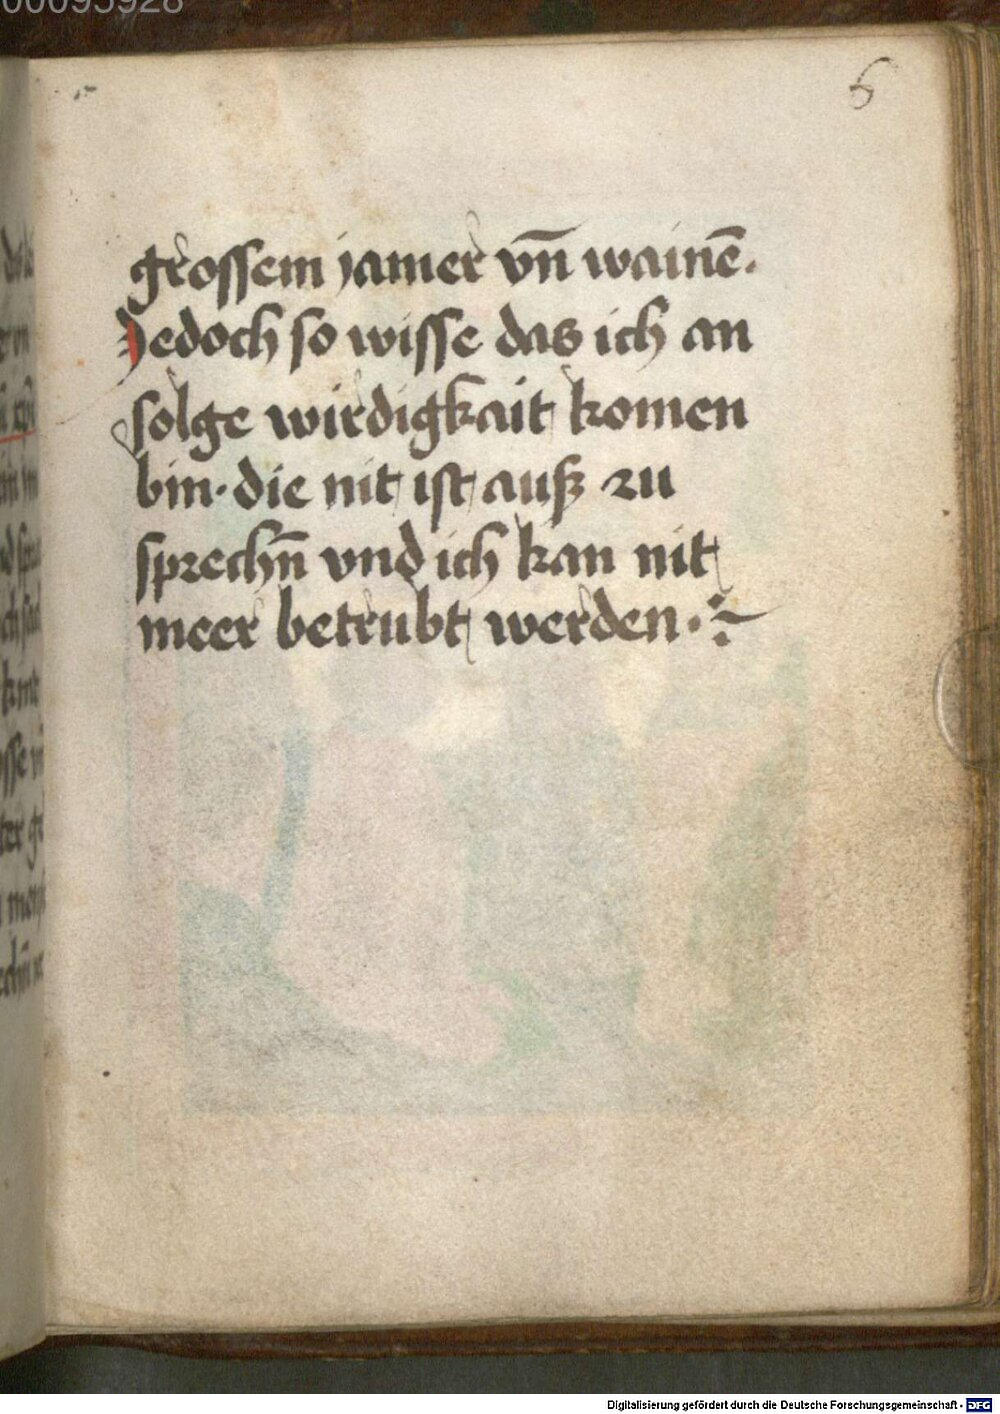 00095928
6
grossem jamer vn̄ wainē.
Jedoch so wisse das ich an
solge wirdigkait komen
bin · die nit ist auß zu
sprechn̄ vnd ich kan nit
meer betrubt werden · ~
Digitalisierung gefördert durch die Deutsche Forschungsgemeinschaft - DFG